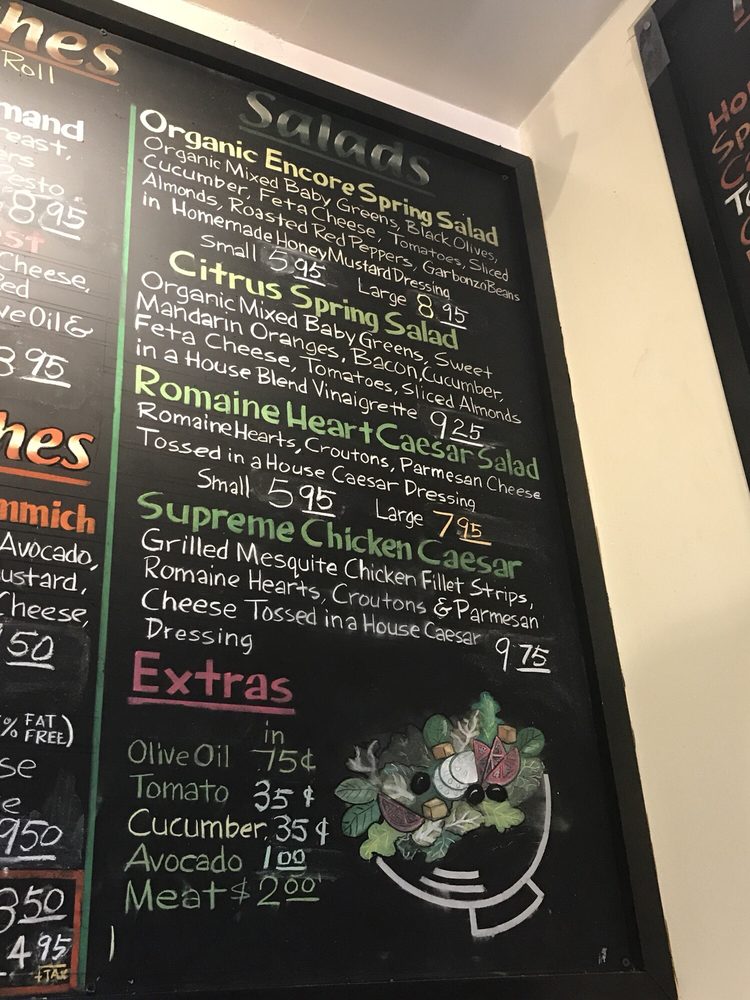 hes
Roll
mand
reast,
ers
Pesto
8.95
st
Cheese,
ed
ve Oil &
8 95
hes
mmich
Avocado,
ustard,
Cheese,
50
% FAT
FREE)
se
e
950
350
4 95
+TAX
Salads
Organic Encore Spring Salad
Organic Mixed Baby Greens, Black Olives,
Cucumber, Feta Cheese, Tomatoes, Sliced
Almonds, Roasted Red Peppers, Garbonzo Beans
in Homemade Honey Mustard Dressing
Small 5.95 Large 8.95
Citrus Spring Salad
Organic Mixed Baby Greens, Sweet
Mandarin Oranges, Bacon, Cucumber,
Feta Cheese, Tomatoes, Sliced Almonds
in a House Blend Vinaigrette 9 25
Romaine Heart Caesar Salad
Romaine Hearts, Croutons, Parmesan Cheese
Tossed in a House Caesar Dressing
Small 5 95 Large 7 95
Supreme Chicken Caesar
Grilled Mesquite Chicken Fillet Strips,
Romaine Hearts, Croutons & Parmesan
Cheese Tossed in a House Caesar
Dressing 9 75
Extras
in
Olive Oil .75¢
Tomato 35¢
Cucumber 35¢
Avocado 1 00
Meat $2 00
Ho
Sp